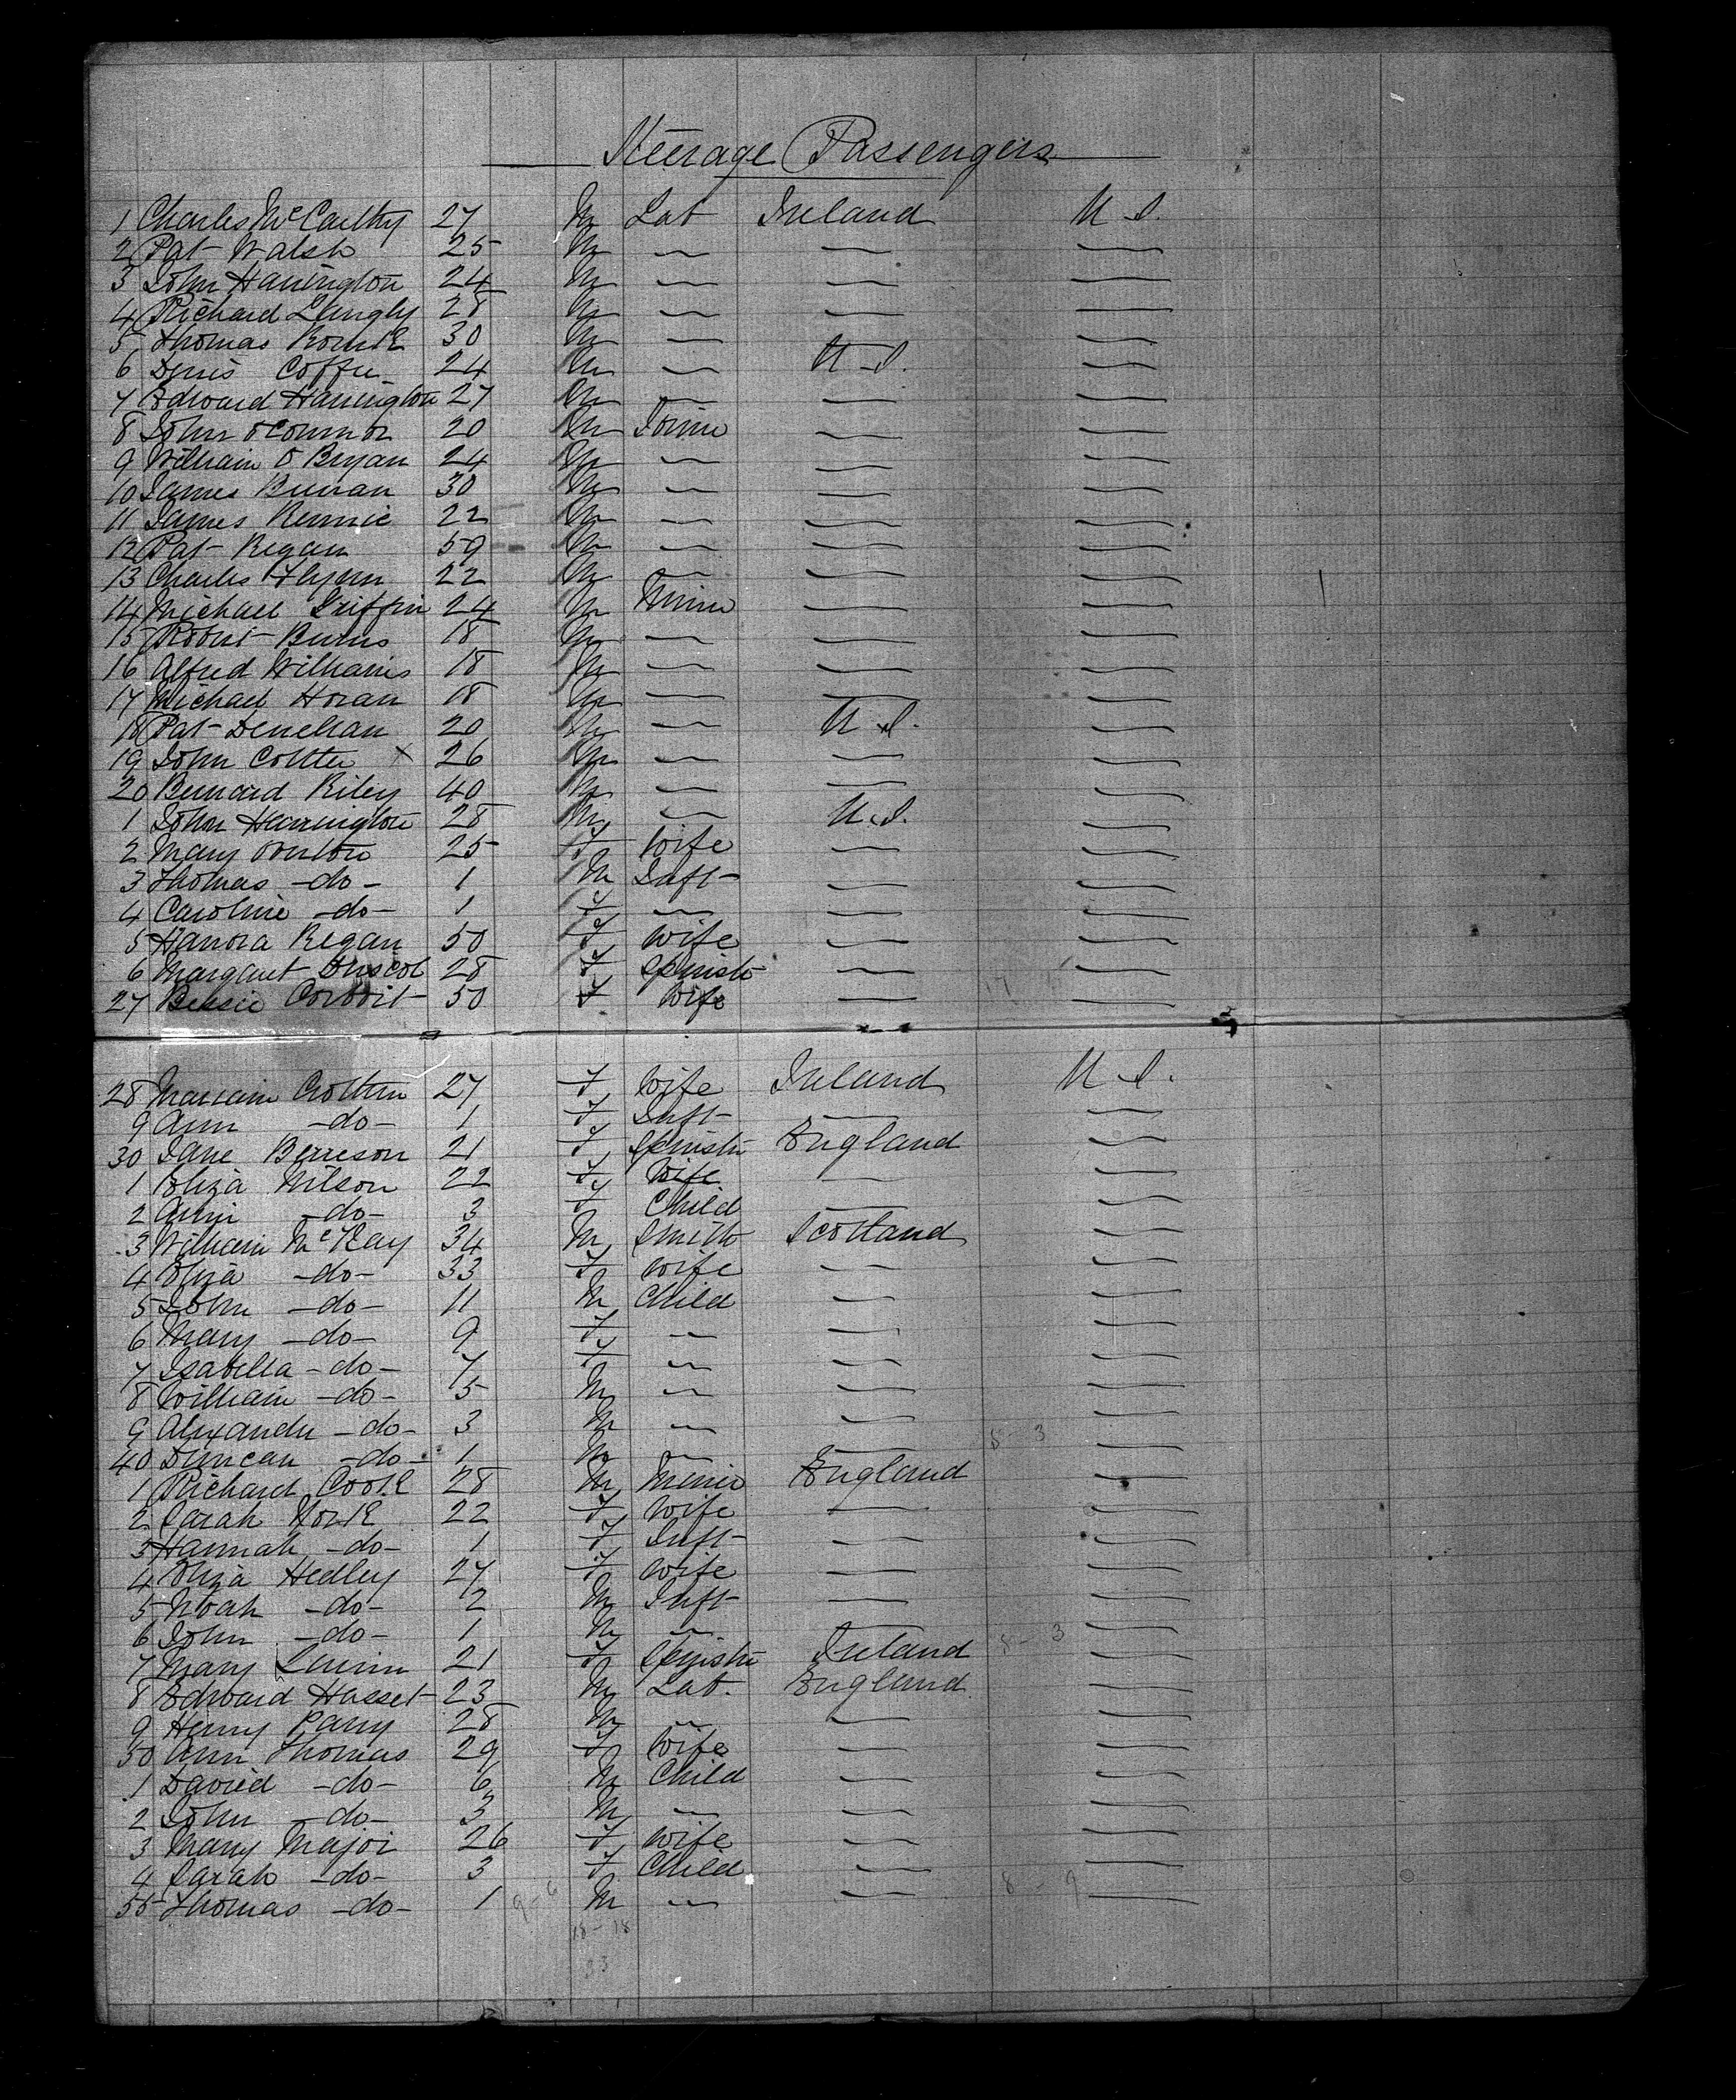 Steerage Passengers
1 Charles McCarthy 27 M Lab Ireland U.S.
2 Pat Walsh 25 M — — —
3 John Harrington 24 M — — —
4 Richard 28 M — — —
5 Thomas 30 M — — —
6 Denis Coffee 24 M — U.S. —
7 Edward Harrington 27 M — — —
8 John O'Connor 20 M — —
9 William O Bryan 24 M — — —
10 James 30 M — — —
11 James Rennie 22 M — — —
12 Pat Regan 59 M — — —
13 Charles Flynn 22 M — — —
14 Michael Griffin 24 M Miner — —
15 Robert Burns 18 M — — —
16 Alfred Williams 18 M — — —
17 Michael Horan 18 M — — —
18 Pat Denehan 20 M — U.S. —
19 John Coltter X 26 M — — —
20 Bernard Riley 40 M — — —
1 John Harrington 28 M — U.S. —
2 Mary 25 F Wife — —
3 Thomas -do- 1 M Inft — —
4 Caroline -do- 1 F — — —
5 Hanora Regan 50 F Wife — —
6 Margaret Driscol 28 F Spinstr — —
27 Bessie Corboit 50 F Wife — —
28 27 F Wife Ireland U.S.
9 Ann -do- 1 F Inft — —
30 Jane 21 F Spinstr England —
1 Eliza Wilson 22 F Wife — —
2 Annie -do- 3 F Child — —
3 William McKay 34 M Smith Scotland —
4 Eliza -do- 33 F Wife — —
5 John -do- 11 M Child — —
6 Mary -do- 9 F — — —
7 Isabella -do- 7 F — — —
8 William -do- 5 M — — —
9 Alexander -do- 3 M — — —
40 Duncan -do- 1 M — — —
1 Richard Cook 28 M Miner England —
2 Sarah York 22 F Wife — —
3 Hannah -do- 1 F Inft — —
4 Eliza Hedley 27 F Wife — —
5 Noah -do- 2 M Inft — —
6 John -do- 1 M — — —
7 Mary Quinn 21 F Spinstr Ireland —
8 Edward Hasset 23 M Lab. England —
9 Henry Parry 28 M — — —
50 Ann Thomas 29 F Wife — —
1 David -do- 6 M Child — —
2 John -do- 3 M — — —
3 Mary Major 26 F Wife — —
4 Sarah -do- 3 F Child — —
55 Thomas -do- 1 M — — —
18-18
33